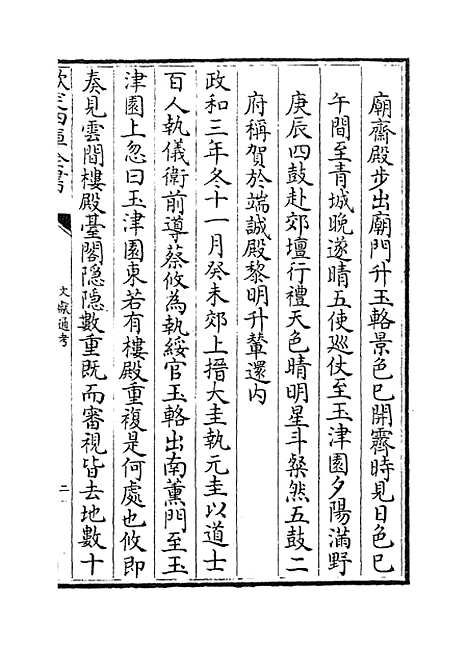 廟齋殿步出廟門升玉輅景色已開霽時見日色已
午間至青城晚遂晴五使廵仗至玉津園夕陽滿野
庚辰四鼓赴郊壇行禮天色晴明星斗粲然五鼓二
府稱賀於端誠殿黎明升輦還内
政和三年冬十一月癸未郊上搢大圭執元圭以道士
百人執儀衛前導蔡攸為執綏官玉輅出南薰門至玉
津園上忽曰玉津園東若有樓殿重複是何處也攸即
奏見雲間樓殿臺閣隠隠數重既而審視皆去地數十
欽定四庫全書
文獻通考
二